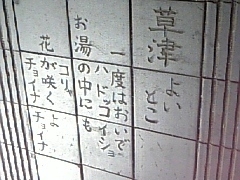 草津 よい とこ
一度はおいで
ハ ドッコイショ
お湯の中にも
コリャ
花が咲くよ
チョイナ チョイナ